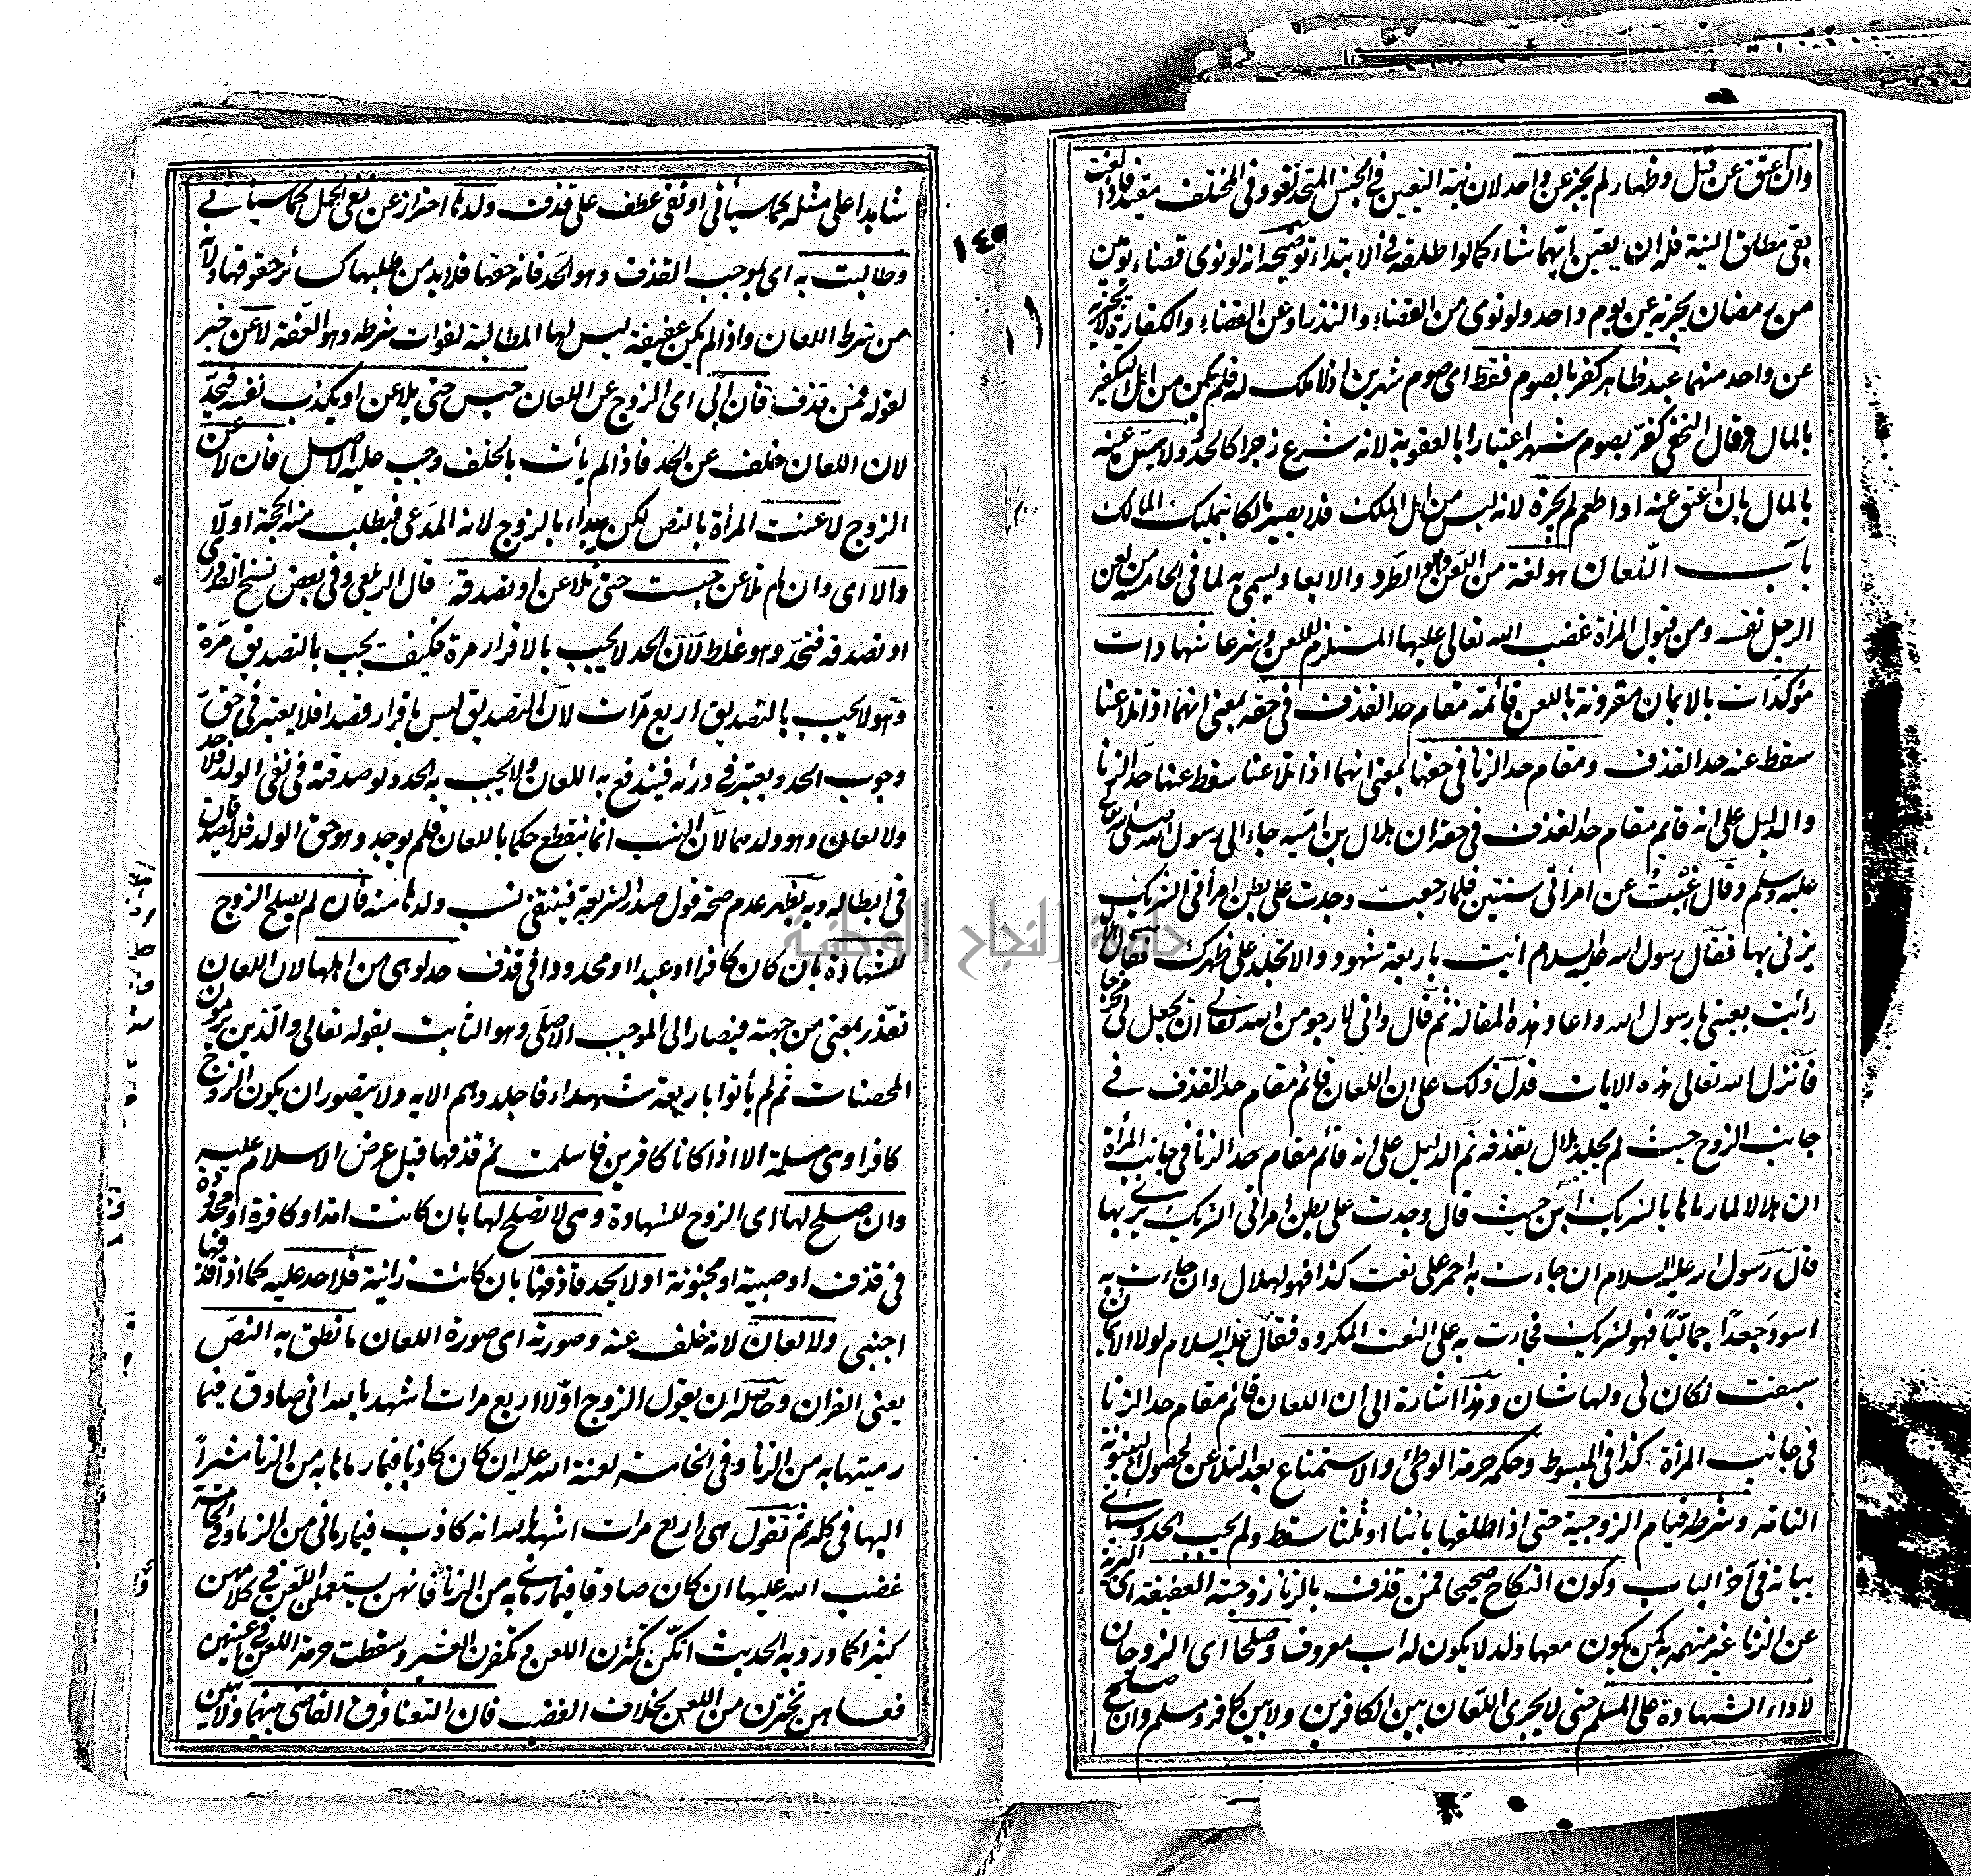 وان عتق عن قتل وظهار لم يجز عن واحد لان نية التعيين في الجنس المتحد لغو وفي المختلف مفيد فاذا لغت
بقى مطلق النية فله ان يعين ايهما شاء كما لو اطلقه في الابتداء توضيحه انه لو نوى قضاء يومين
من رمضان يجزيه عن يوم واحد ولو نوى من القضاء والنذر او عن القضاء والكفارة لا يجزيه
عن واحد منهما عبد ظاهر كفر بالصوم فقط اى صوم شهرين اذ لا ملك له فلم يكن من اهل التكفير
بالمال وقال النخعى كفر بصوم شهر اعتبارا بالعقوبة لانه شرع زجرا كالحد ولا سيده عنه
بالمال بان عتق عنه او اطعم لم يجزه لانه ليس من اهل الملك فلا يصير مالكا بتمليك المالك
باب اللعان هو لغة من اللعن وهو الطرد والابعاد ويسمى به لما في الخامسة من لعن
الرجل نفسه ومن قبول المرأة غضب الله تعالى عليها المستلزم للعن وشرعا شهادات
مؤكدات بالايمان مقرونة باللعن قائمة مقام حد القذف في حقه بمعنى انهما اذا تلاعنا
سقط عنه حد القذف ومقام حد الزنا في حقها بمعنى انهما اذا تلاعنا سقط عنها حد الزنا
والدليل على انه قائم مقام حد القذف في حقه ان هلال بن امية جاء الى رسول الله صلى الله تعالى
عليه وسلم وقال غبت عن امرأتى سنتين فلما رجعت وجدت على بطن امرأتى الشريك
يزني بها فقال رسول الله عليه السلام ائت باربعة شهود والا تجلد على ظهرك فقال الآن
رأيت بعينى يا رسول الله واعاد هذه المقالة ثم قال وانى لارجو من الله تعالى ان يجعل لى مخرجا
فانزل الله تعالى هذه الايات فدل ذلك على ان اللعان قائم مقام حد القذف في
جانب الزوج حيث لم يجلد هلال بقذفه ثم الدليل على انه قائم مقام حد الزنا في جانب المرأة
ان هلالا لما رماها بالشريك ابن حيث قال وجدت على بطن امرأتى الشريك يزني بها
قال رسول الله عليه السلام ان جاءت به احمر على نعت كذا فهو لهلال وان جاءت به
اسود جعدا جماليا فهو لشريك فجاءت به على النعت المكروه فقال عليه السلام لولا الايمان
سبقت لكان لى ولها شان وهذا اشارة الى ان اللعان قائم مقام حد الزنا
في جانب المرأة كذا في المبسوط وحكمه حرمة الوطئ والاستمتاع بعد التلاعن لحصول البينونة
التامة وشرطه قيام الزوجية حتى اذا طلقها بائنا او ثلثا سقط ولم يجب الحد وسيأتى
بيانه في آخر الباب وكون النكاح صحيحا فمن قذف بالزنا زوجته العفيفة اى البريئة
عن الزنا غير متهمة به كمن يكون معها ولد لا يكون له اب معروف وصلحا اى الزوجان
لاداء الشهادة على المسلم حتى لا يجرى اللعان بين الكافرين ولا بين كافر ومسلم وان صلح
١٤٥
شاهدا على مثله كما سيأتى او نفى عطف على قذف ولدها احتراز عن نفى الحمل كما سيأتى
وطالبت به اى بموجب القذف وهو الحد فانه حقها فلابد من طلبها كسائر حقوقها ولا
من شرط اللعان واذا لم يكن عفيفة ليس لها المطالبة لفوات شرطه وهو العفة لاعن خبر
لقوله فمن قذف فان ابى اى الزوج عن اللعان حبس حتى يلاعن او يكذب نفسه فيحد
لان اللعان خلف عن الحد فاذا لم يأت بالخلف وجب عليه الاصل فان لاعن
الزوج لاعنت المرأة بالنص لكن يبداء بالزوج لانه المدعى فيطلب منه الحجة اولا
والا اى وان لم تلاعن حبست حتى تلاعن او تصدقه قال الزيلعى وفى بعض نسخ القدورى
او تصدقه فتحد وهو غلط لان الحد لا يجب بالاقرار مرة فكيف يجب بالتصديق مرة
وهو لا يجب بالتصديق اربع مرات لان التصديق ليس باقرار قصدا فلا يعتبر في حق
وجوب الحد ويعتبر في درئه فيندفع به اللعان ولا يجب به الحد ولو صدقته في نفى الولد فلا حد
ولا لعان وهو ولدهما لان النسب انما ينقطع حكما باللعان فلم يوجد وهو حق الولد فلا يصدقان
في ابطاله وبه يظهر عدم صحة قول صدر الشريعة فينتفى نسب ولدها منه فان لم يصلح الزوج
للشهادة بان كان كافرا او عبدا او محدودا في قذف حد لو هى من اهلها لان اللعان
تعذر بمعنى من جهته فيصار الى الموجب الاصلى وهو الثابت بقوله تعالى والذين يرمون
المحصنات ثم لم يأتوا باربعة شهداء فاجلدوهم الايه ولا يتصور ان يكون الزوج
كافرا وهى مسلمة الا اذا كانا كافرين فاسلمت ثم قذفها قبل عرض الاسلام عليه
وان صلح لها اى الزوج للشهادة وهى لا تصلح لها بان كانت امة او كافرة او محدودة
في قذف او صبية او مجنونة او لا يحد قاذفها بان كانت زانية فلا حد عليه كما اذا قذفها
اجنبى ولا لعان لانه خلف عنه وصورته اى صورة اللعان ما نطق به النص
يعنى القران وحاصله ان يقول الزوج اولا اربع مرات اشهد بالله انى صادق فيما
رميتها به من الزنا وفى الخامسة لعنة الله عليه ان كان كاذبا فيما رماها به من الزنا مشيرا
اليها في كله ثم تقول هى اربع مرات اشهد بالله انه كاذب فيما رمانى من الزنا وفى الخامسة
غضب الله عليها ان كان صادقا فيما رمانى به من الزنا فانهن يستعملن اللعن في كلامهن
كثيرا كما ورد به الحديث انكن تكثرن اللعن وتكفرن العشير وسقطت حرمة اللعن في اعينهن
فعساهن يجترئن من اللعن بخلاف الغضب فان التعنا فرق القاضى بينهما ولا تبين
جامعة النجاح الوطنية